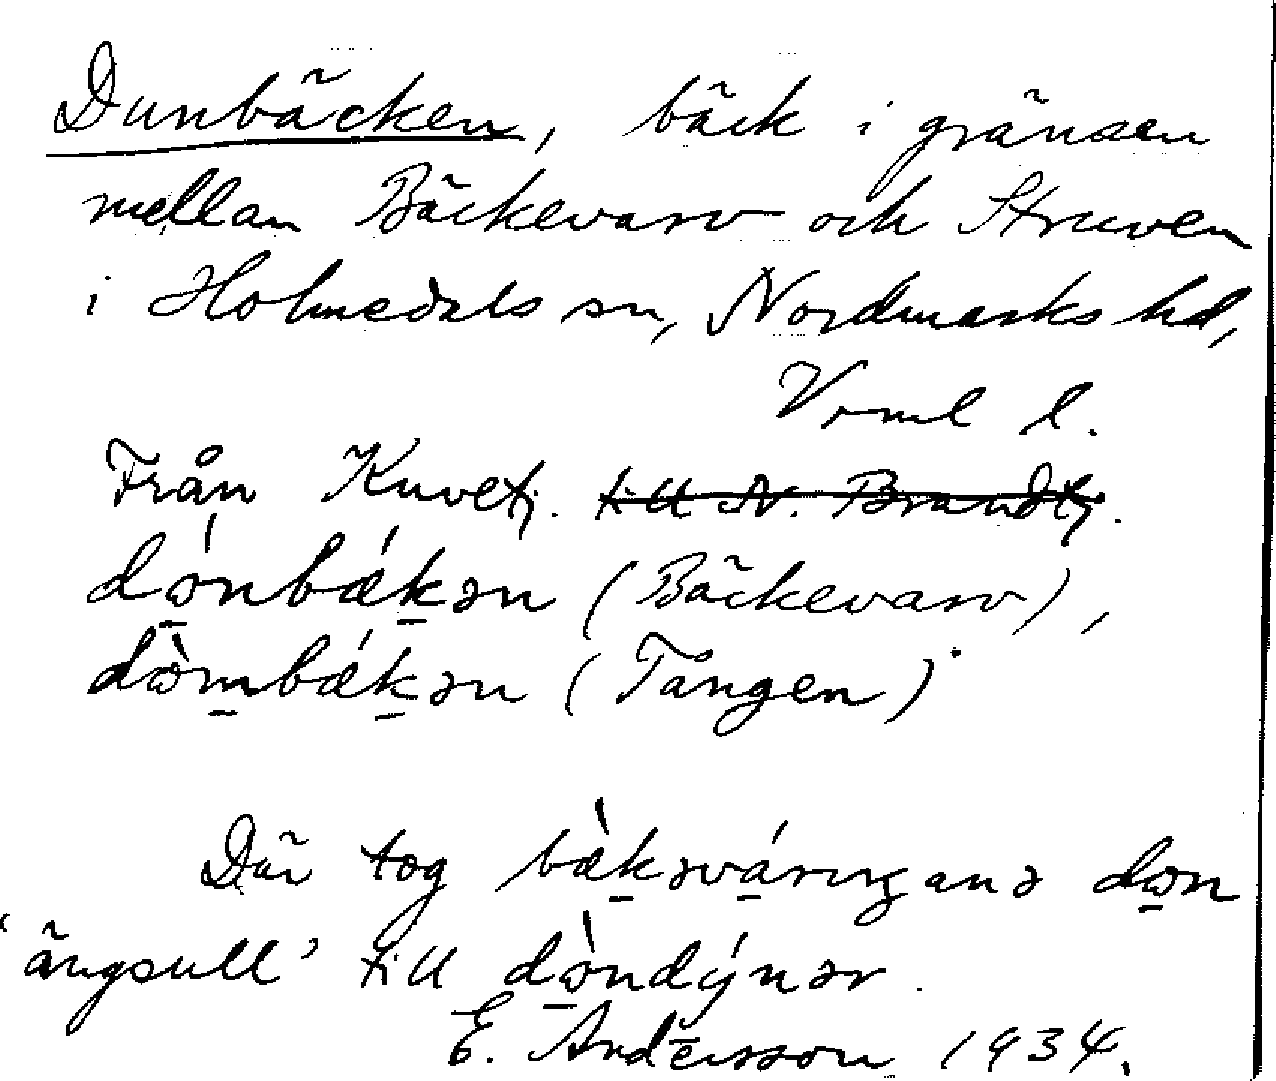 Dunbäcken, bäck i gränsen
mellan Bäckevarv och Struven
i Holmedals sn, Nordmarks hd,
Vrml l.
Från Kuvetj. till N. Brandtj.
dɷ́nbǽkən (Bäckevarv),
dɷ̀mbǽkən (Tången)
Där tog bæ̀kəvárɩŋana dɷn
'ängsull' till dɷ̀ndýnər.
E. Andersson 1934.